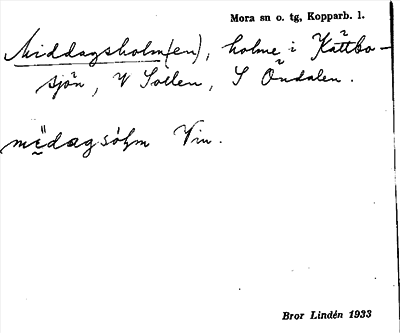 Mora sn o. tg, Kopparb. l.
Middagsholm(en), holme i Kättbo-
sjön, V Sollen, S Öndalen.
mëdagsòłm Vin.
Bror Lindén 1933